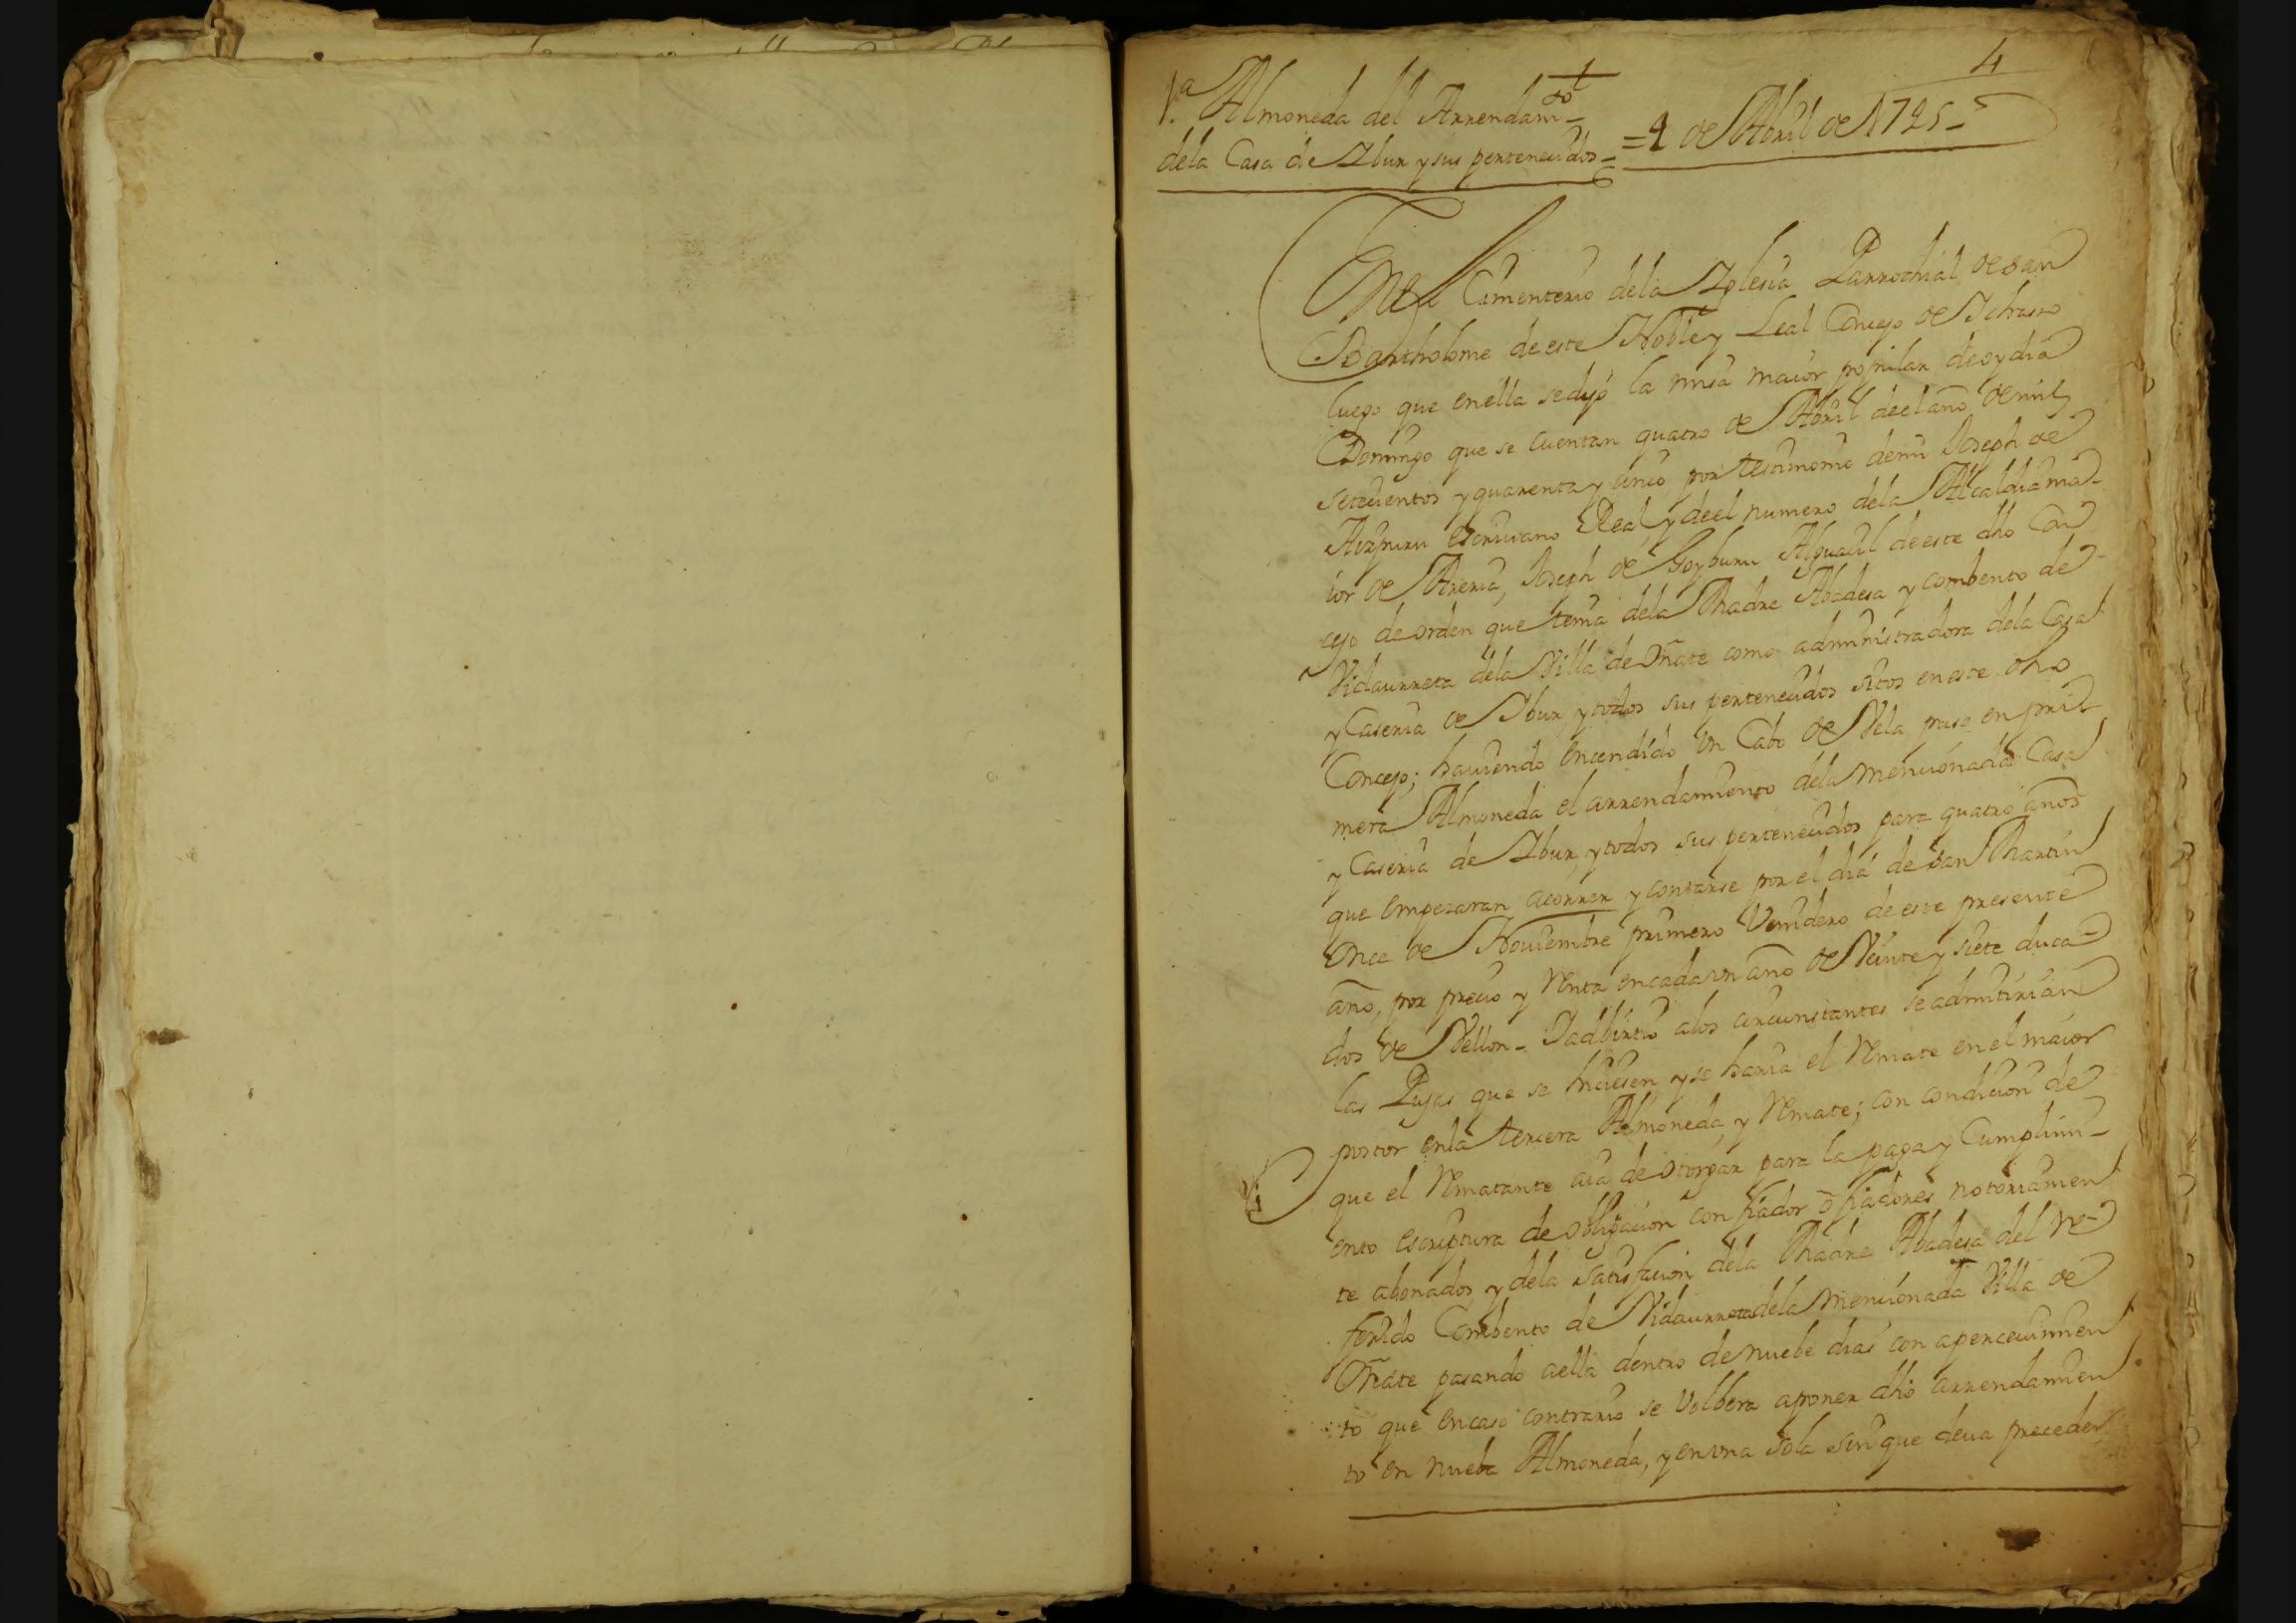 4
1.ª Almoneda del Arrendam.to
dela Casa de Ybur y sus pertenecidos =
= 4 de Abril de 1745
En el Cimenterio dela Yglesia Parrochial de San
Bartholome de este Noble y Leal Concejo de Ichasso
luego que en ella se dijo la misa maior popular de oy dia
Domingo que se cuentan quatro de Abril de el año de mil
setecientos y quarenta y cinco por testimonio de mi Joseph de
Aizpuru escriuano Real, y de el numero dela Alcaldia ma-
ior de Areria, Joseph de Goyburu Alguacil de este dho Con
cejo de orden que tenia dela Madre Abadesa y combento de
Vidaurreta dela Villa de Oñate como administradora dela Casa
y Caseria de Ybur, y todos sus pertenecidos sitos en este dho
Concejo; hauiendo encendido un Cabo de Vela puso en pri-
mera Almoneda el arrendamiento dela mencionada Casa
y Caseria de Ybur, y todos sus pertenecidos para quatro años
que empezaran acorrer y contarse por el dia de San Martin
Once de Nouiembre primero Venidero de este presente
año, por precio y Renta en cada un año de Veinte y siete duca-
dos de Vellon - Y adbirtio alos circunstantes se admitirian
las Pujas que se hiciesen, y se haria el Remate en el maior
postor en la tercera Almoneda, y Remate; con condicion de
que el Rematante aia de otorgar para la paga y Cumplimi-
ento escriptura de obligacion con fiador ò fiadores notoriamen
te abonados, y dela satisfacion dela Madre Abadesa del Re-
ferido Combento de Vidaurreta dela mencionada Villa de
Oñate pasando aella dentro de nuebe dias con apercauimien
to que en caso contrario se Volbera aponer dho arrendamien
to en nueba Almoneda, y en una sola sin que deua preceder